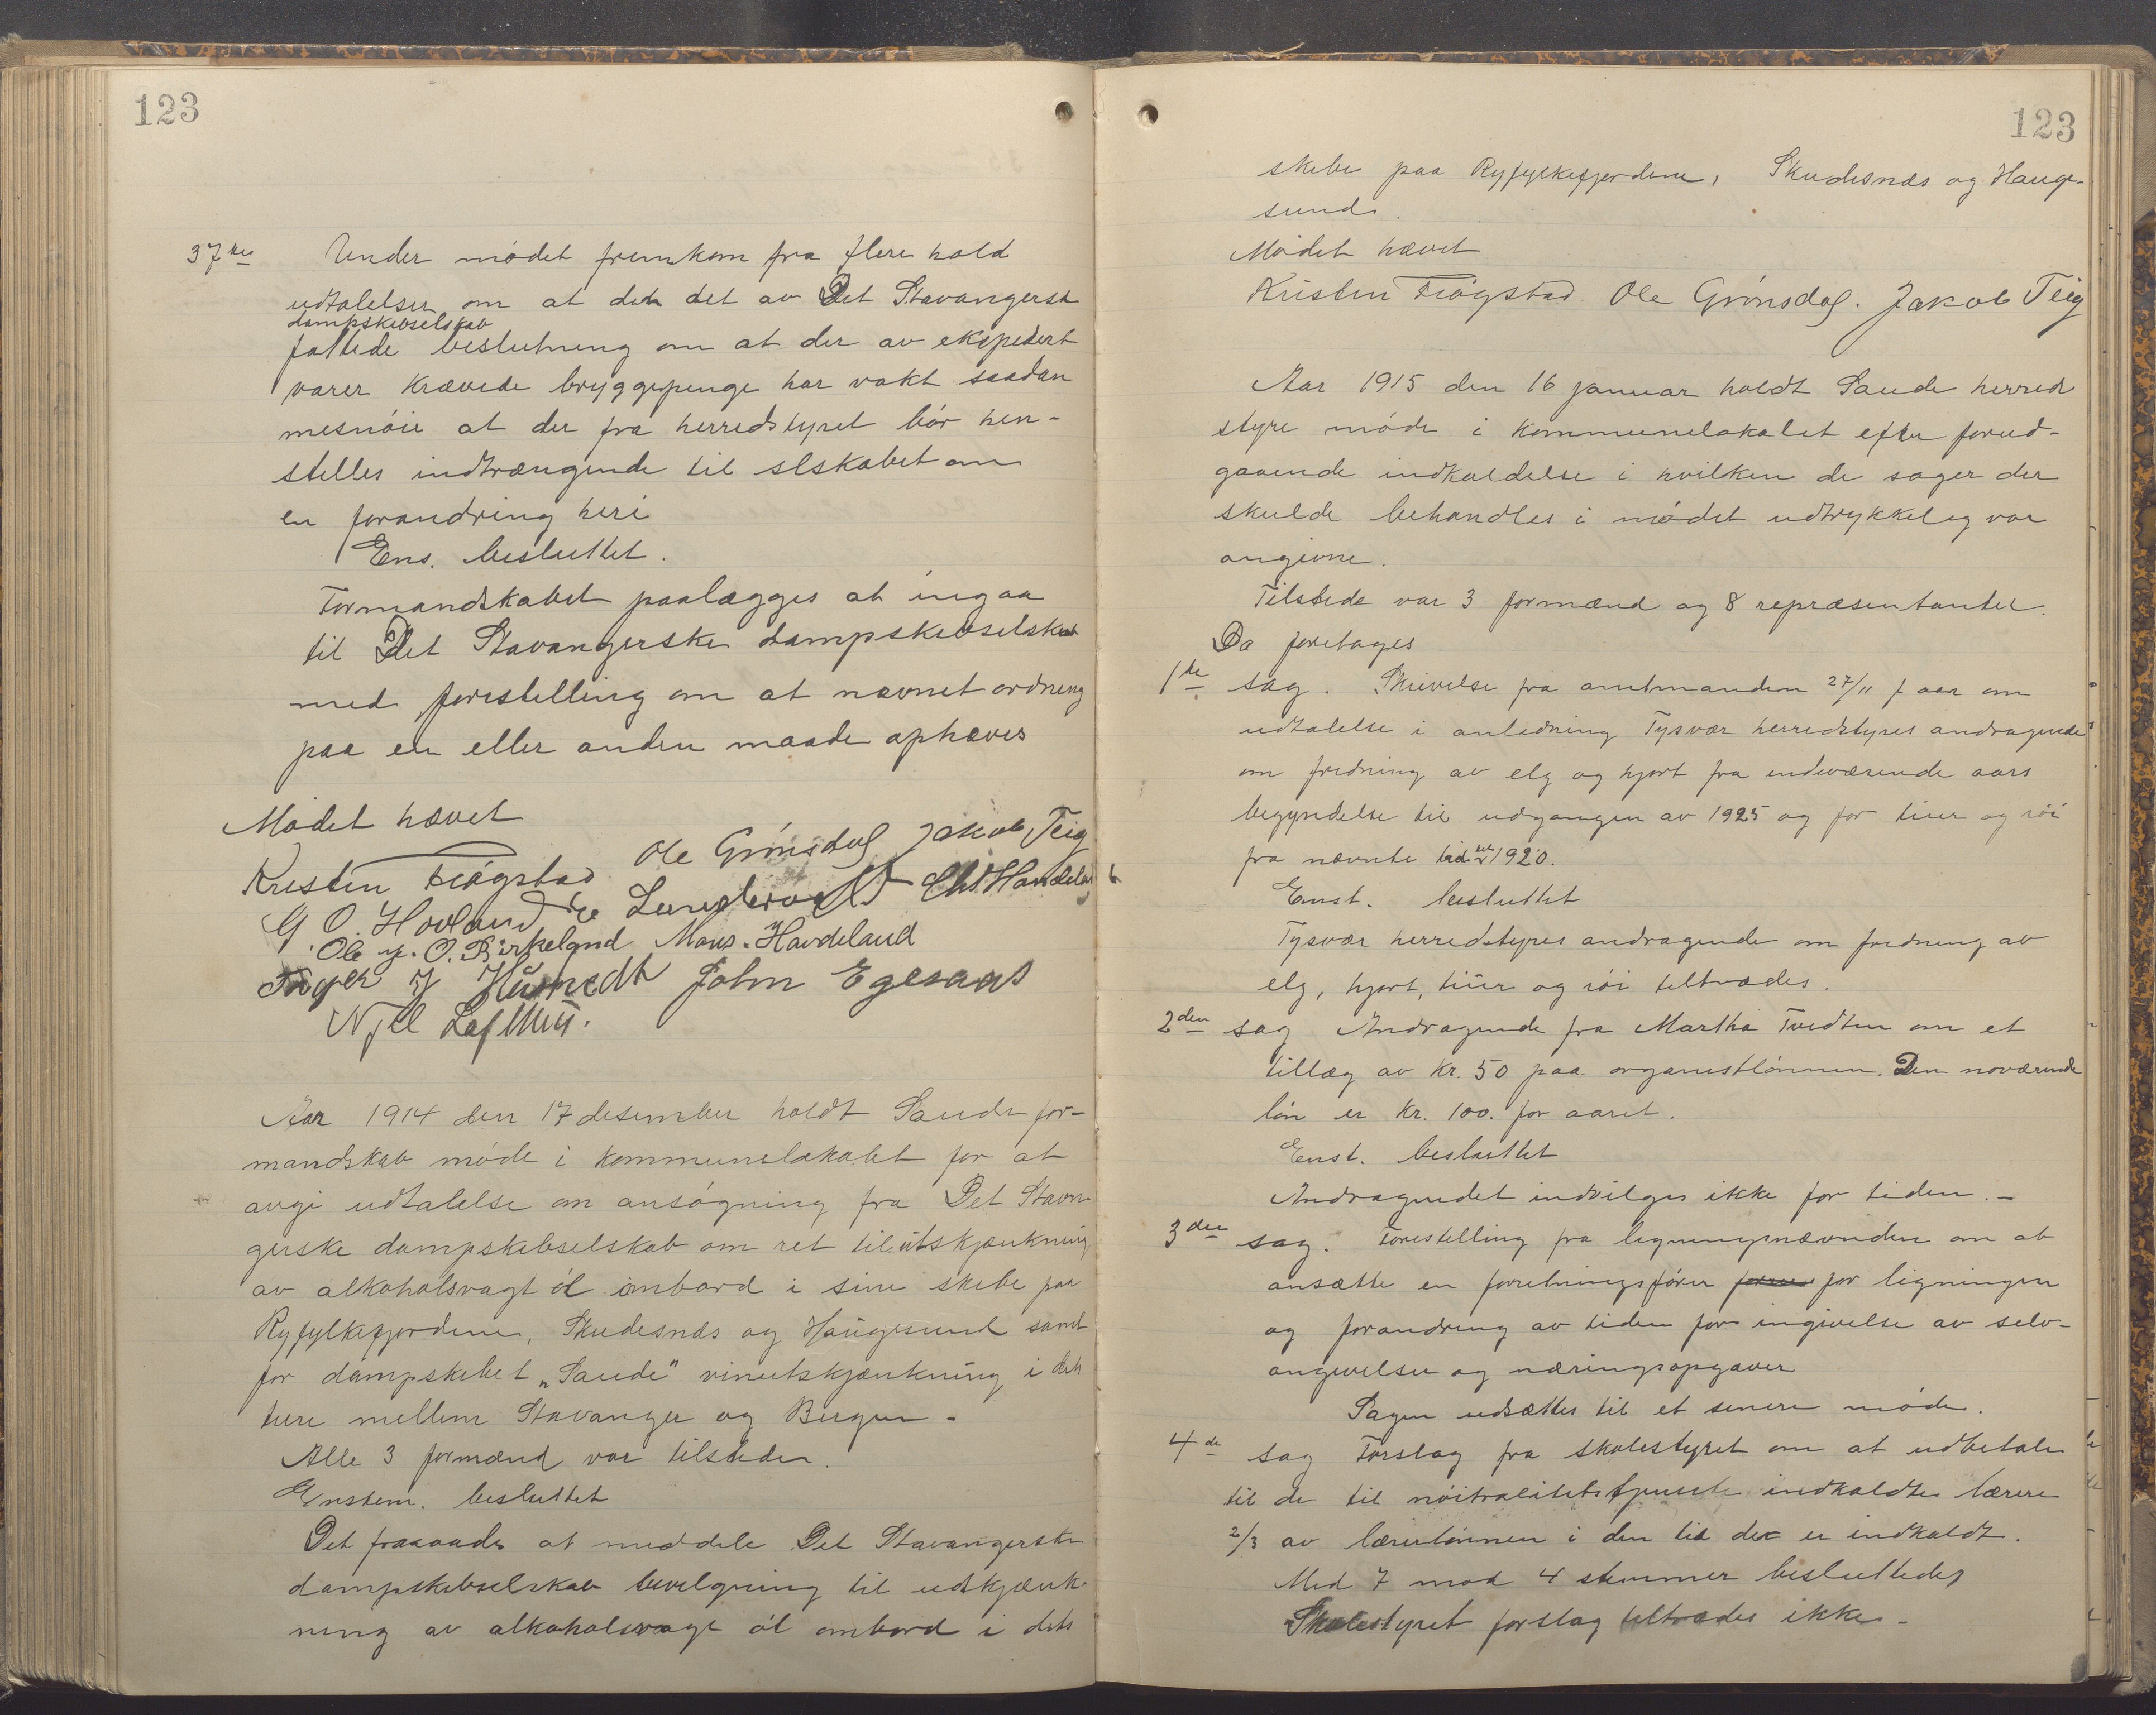 123
37te Under mødet fremkom fra flere hold
udtalelser om at det det av Det Stavangerske
dampskibselskab
fattede beslutning om at der av ekspedert
varer krævede bryggepenge har vakt saadan
mesnøie at der fra herredstyret bør hen-
stelles indtrængende til slskabet om
en forandring heri
Ens. besluttet.
Formandskabet paalægges at ingaa
til Det Stavangerske dampskibselskab
med forestelling om at nævnet ordning
paa en eller anden maade ophæves
Mødet hævet
Kristen Fiogstad Ole Grønsdal Jakob Teig
G. O. Hovland
Ole J. O. Birkeland Mons. Havdeland
John Egesaas
Aar 1914 den 17 desember holdt Saude for-
mandskab møde i kommunelokalet for at
avgi udtalelse om ansøgning fra Det Stavn-
gerske dampskibselskab om ret til utskjænkning
av alkoholsvagt øl ombord i sine skibe paa
Ryfylkefjordene, Skudesnæs og Haugesund samt
for dampskibet „Saude" vinutskjænkning i dets
ture mellem Stavanger og Bergen -
Alle 3 formænd var tilstede.
Enstem. besluttet
Det fraraades at meddele Det Stavangerske
dampskibselskab bevilgning til udskjænk-
ning av alkoholsvagt øl ombord i dets
123
skibe paa Ryfylkefjordene, Skudesnæs og Hauge-
sund.
Mødet hævet
Kristen Fiogstad Ole Grønsdal. Jakob Teig
Aar 1915 den 16 januar holdt Saude herred
styre møde i kommunelokalet efter forud-
gaaende indkaldelse i hvilken de sager der
skulde behandles i mødet udtrykkelig var
angivne.
Tilstede var 3 formænd og 8 repræsentanter.
Da foretages
1te sag. Skrivelse fra amtmanden 27/11 f aar om
udtalelse i anledning Tysvær herredstyres andragende
om fredning av elg og hjort fra indeværende aars
begyndelse til udgangen av 1925 og for tiur og røi
fra nævnte tid til 1920.
Enst. besluttet
Tysvær herredstyres andragende om fredning av
elg, hjort, tiur og røi tiltrædes.
2den sag Andragende fra Martha Tvedten om et
tillæg av kr. 50 paa organistlønnen. Den noværende
løn er kr. 100. for aaret.
Enst. besluttet
Andragendet indvilges ikke for tiden. -
3die sag. Forestelling fra ligningsnævnden om at
ansætte en forretningsfører for ligningen
og forandring av tiden for ingivelse av selv-
angivelser og næringsopgaver
Sagen udsættes til et senere møde.
4de sag Forslag fra skolestyret om at udbetale
til de til nøitralitetstjeneste indkaldte lærere
2/3 av lærerlønnen i den tid der er indkaldt.
Med 7 mod 4 stemmer besluttedes
Skolestyret forslag tiltrædes ikke -